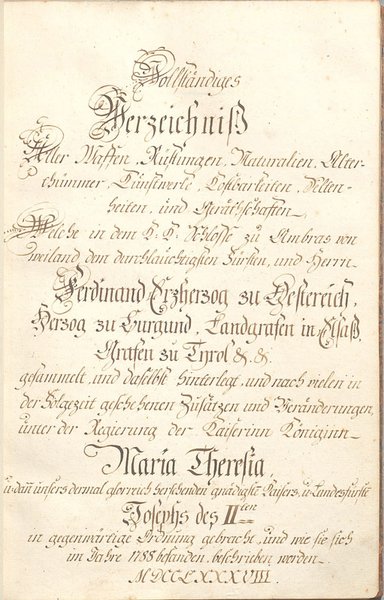 Vollständiges
Verzeichniß
Aller Waffen, Rüstungen, Naturalien, Alter-
thümmer, Kunstwerke, Kostbarkeiten, Selten-
heiten, und Geräthschaften
Welche in dem K: K: Schloße zu Ambras von
weiland dem durchlauchtigsten Fürsten, und Herrn
Ferdinand Erzherzog zu Oestereich,
Herzog zu Burgund, Landgrafen in Elsaß,
Grafen zu Tyrol &. &.
gesammelt, und daselbst hinterlegt, und nach vielen in
der Folgezeit geschehenen Zusätzen und Veränderungen,
unter der Regierung der Kaiserinn Königinn
Maria Theresia,
u: dañ unsers dermal glorreich herschenden gnädigst Kaisers, u: Landesfürste
Josephs des IIten
in gegenwärtige Ordnung gebracht, und wie sie sich
im Jahre 1788 befanden, beschrieben worden
MDCCLXXXVIII.